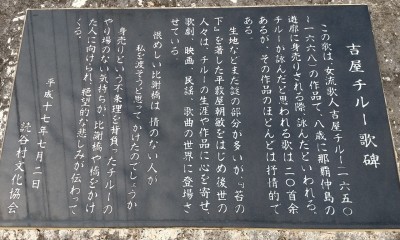 吉屋チルー歌碑
この歌は、女流歌人吉屋チルー(一六五〇
～一六六八)の作品で、八歳に那覇仲島の
遊廓に身売りされる際、詠んだといわれる。
チルーが詠んだと思われる歌は二〇首余
あるが、その作品のほとんどは抒情的で
生地などまだ謎の部分が多いが、『苔の
下』を著した平敷屋朝敏をはじめ後世の
人々は、チルーの生涯や作品に心を寄せ、
歌劇、映画、民謡、歌曲の世界に登場さ
せている。
恨めしい比謝橋は 情のない人が
私を渡そうと思って かけたのでしょうか
身売りという不条理を背負ったチルーの
やり場のない気持ちが、比謝橋や橋をかけ
た人に向けられ、絶望的な悲しみが伝わって
くる。
平成十七年七月二日
読谷村文化協会